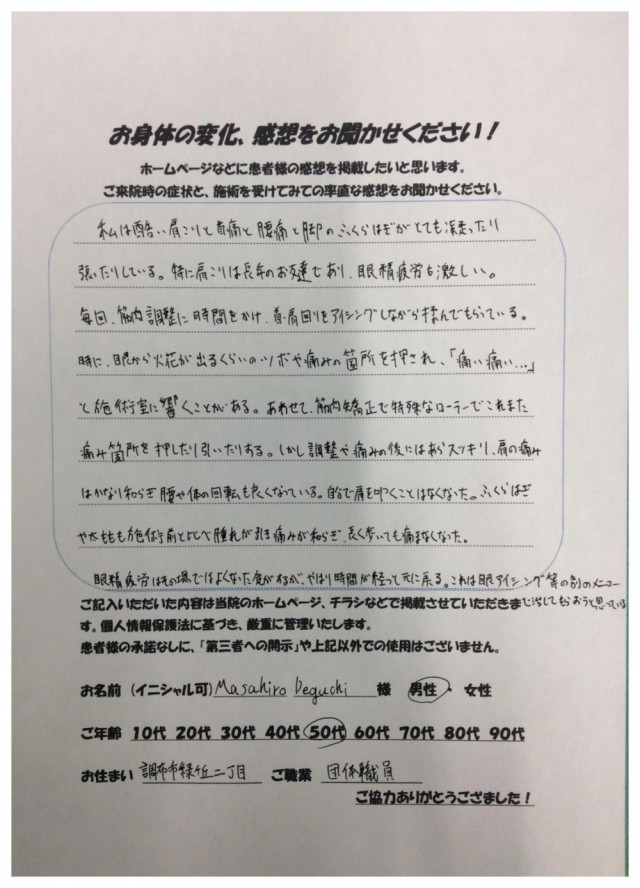 お身体の変化、感想をお聞かせください！
ホームページなどに患者様の感想を掲載したいと思います。
ご来院時の症状と、施術を受けてみての率直な感想をお聞かせください。
私は酷い肩こりと首痛と腰痛と脚のふくらはぎがとても凝ったり
張ったりしている。特に肩こりは長年のお友達であり、眼精疲労も激しい。
毎回、筋肉調整に時間をかけ、首・肩回りをアイシングしながら揉んでもらっている。
時に、眼から火花が出るくらいのツボや痛みの箇所を押され、「痛い痛い…」
と施術室に響くことがある。あわせて、筋肉矯正で特殊なローラーでこれまた
痛み箇所を押したり引いたりする。しかし調整や痛みの後にはあらスッキリ、肩の痛み
はかなり和らぎ腰や体の回転も良くなっている。自分で肩を叩くことはなくなった。ふくらはぎ
や太ももも施術前と比べ腫れが引き痛みが和らぎ、長く歩いても痛まなくなった。
眼精疲労はその場ではよくなった気がするが、やはり時間が経つと元に戻る。これは眼アイシング等の別のメニュー
で治してもらおうと思っている
ご記入いただいた内容は当院のホームページ、チラシなどで掲載させていただきま
す。個人情報保護法に基づき、厳重に管理いたします。
患者様の承諾なしに、「第三者への開示」や上記以外での使用はございません。
お名前（イニシャル可）Masahiro Deguchi 様 男性・女性
ご年齢 10代 20代 30代 40代 50代 60代 70代 80代 90代
お住まい 調布市緑ケ丘二丁目 ご職業 団体職員
ご協力ありがとうござました！